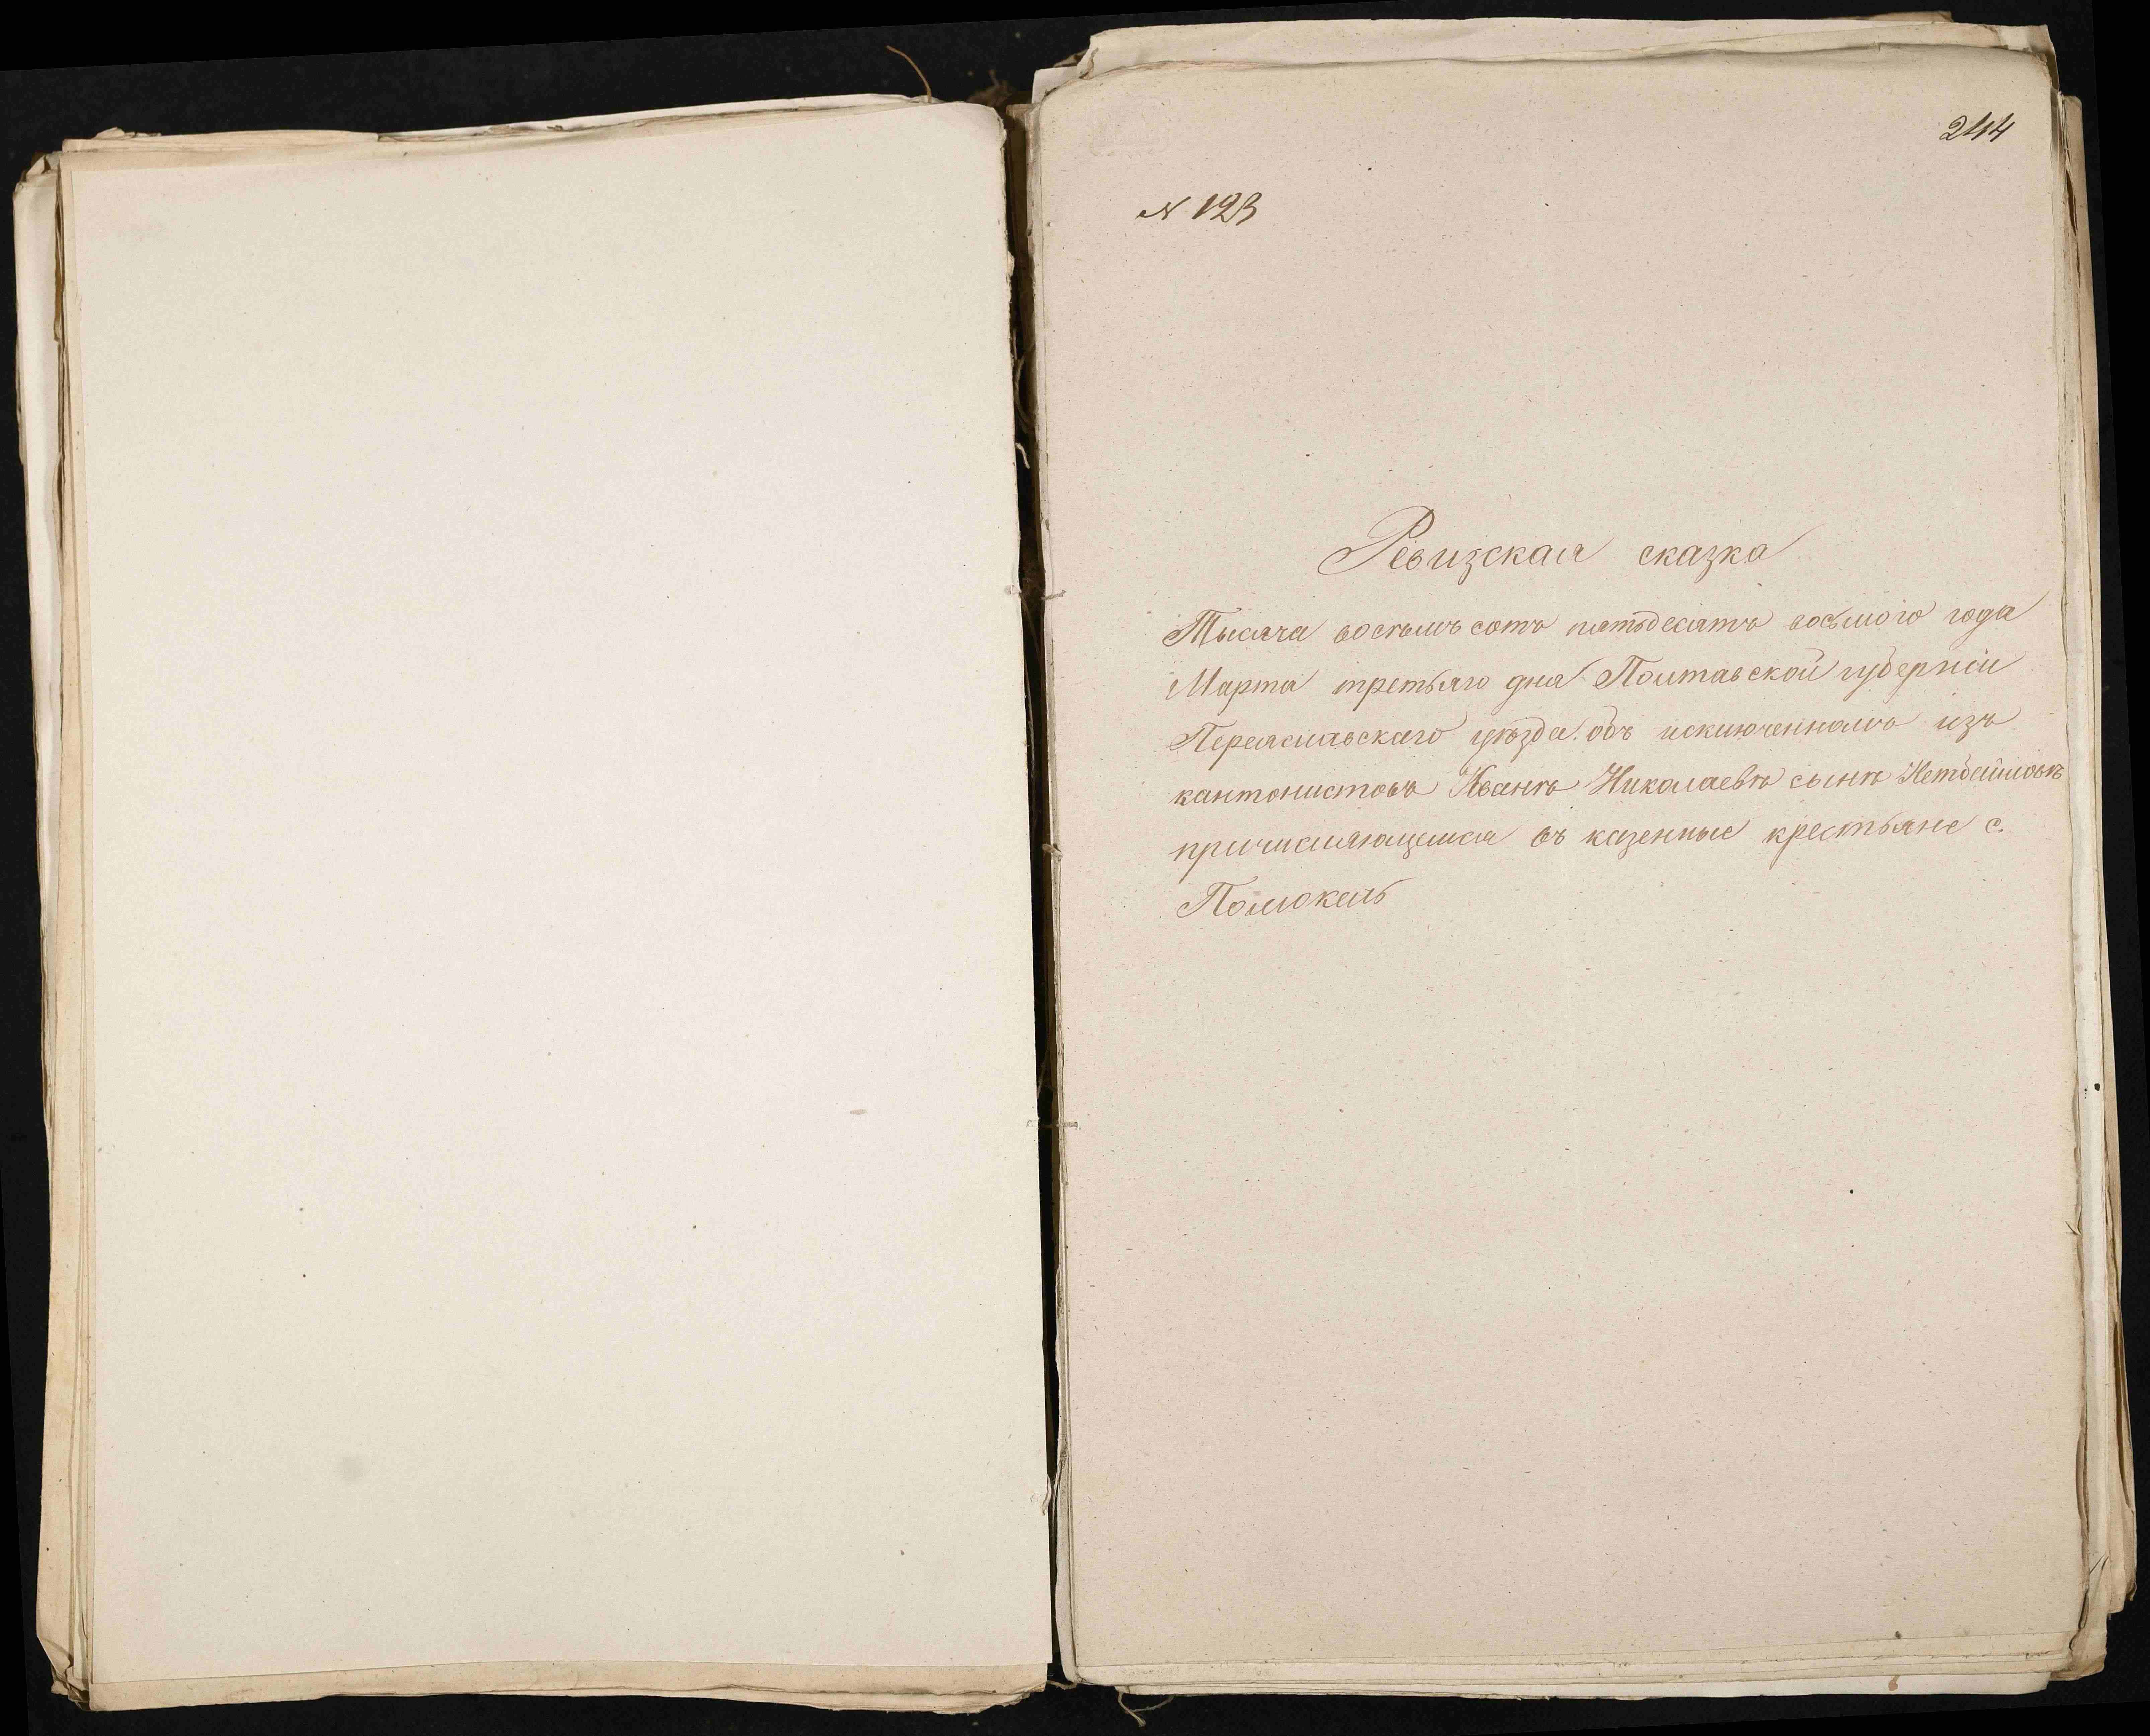 244
N 123
Ревизская сказка
Тысяча восемь сотъ пятьдесятъ восьмого года
Марта третьяго дня Полтавской губерніи
Переяславскаго уѣзда объ исключенномъ изъ
кантонистовъ Иванѣ Николаевѣ сынѣ
причисляющемся въ казенные крестьяне с.
Помокель